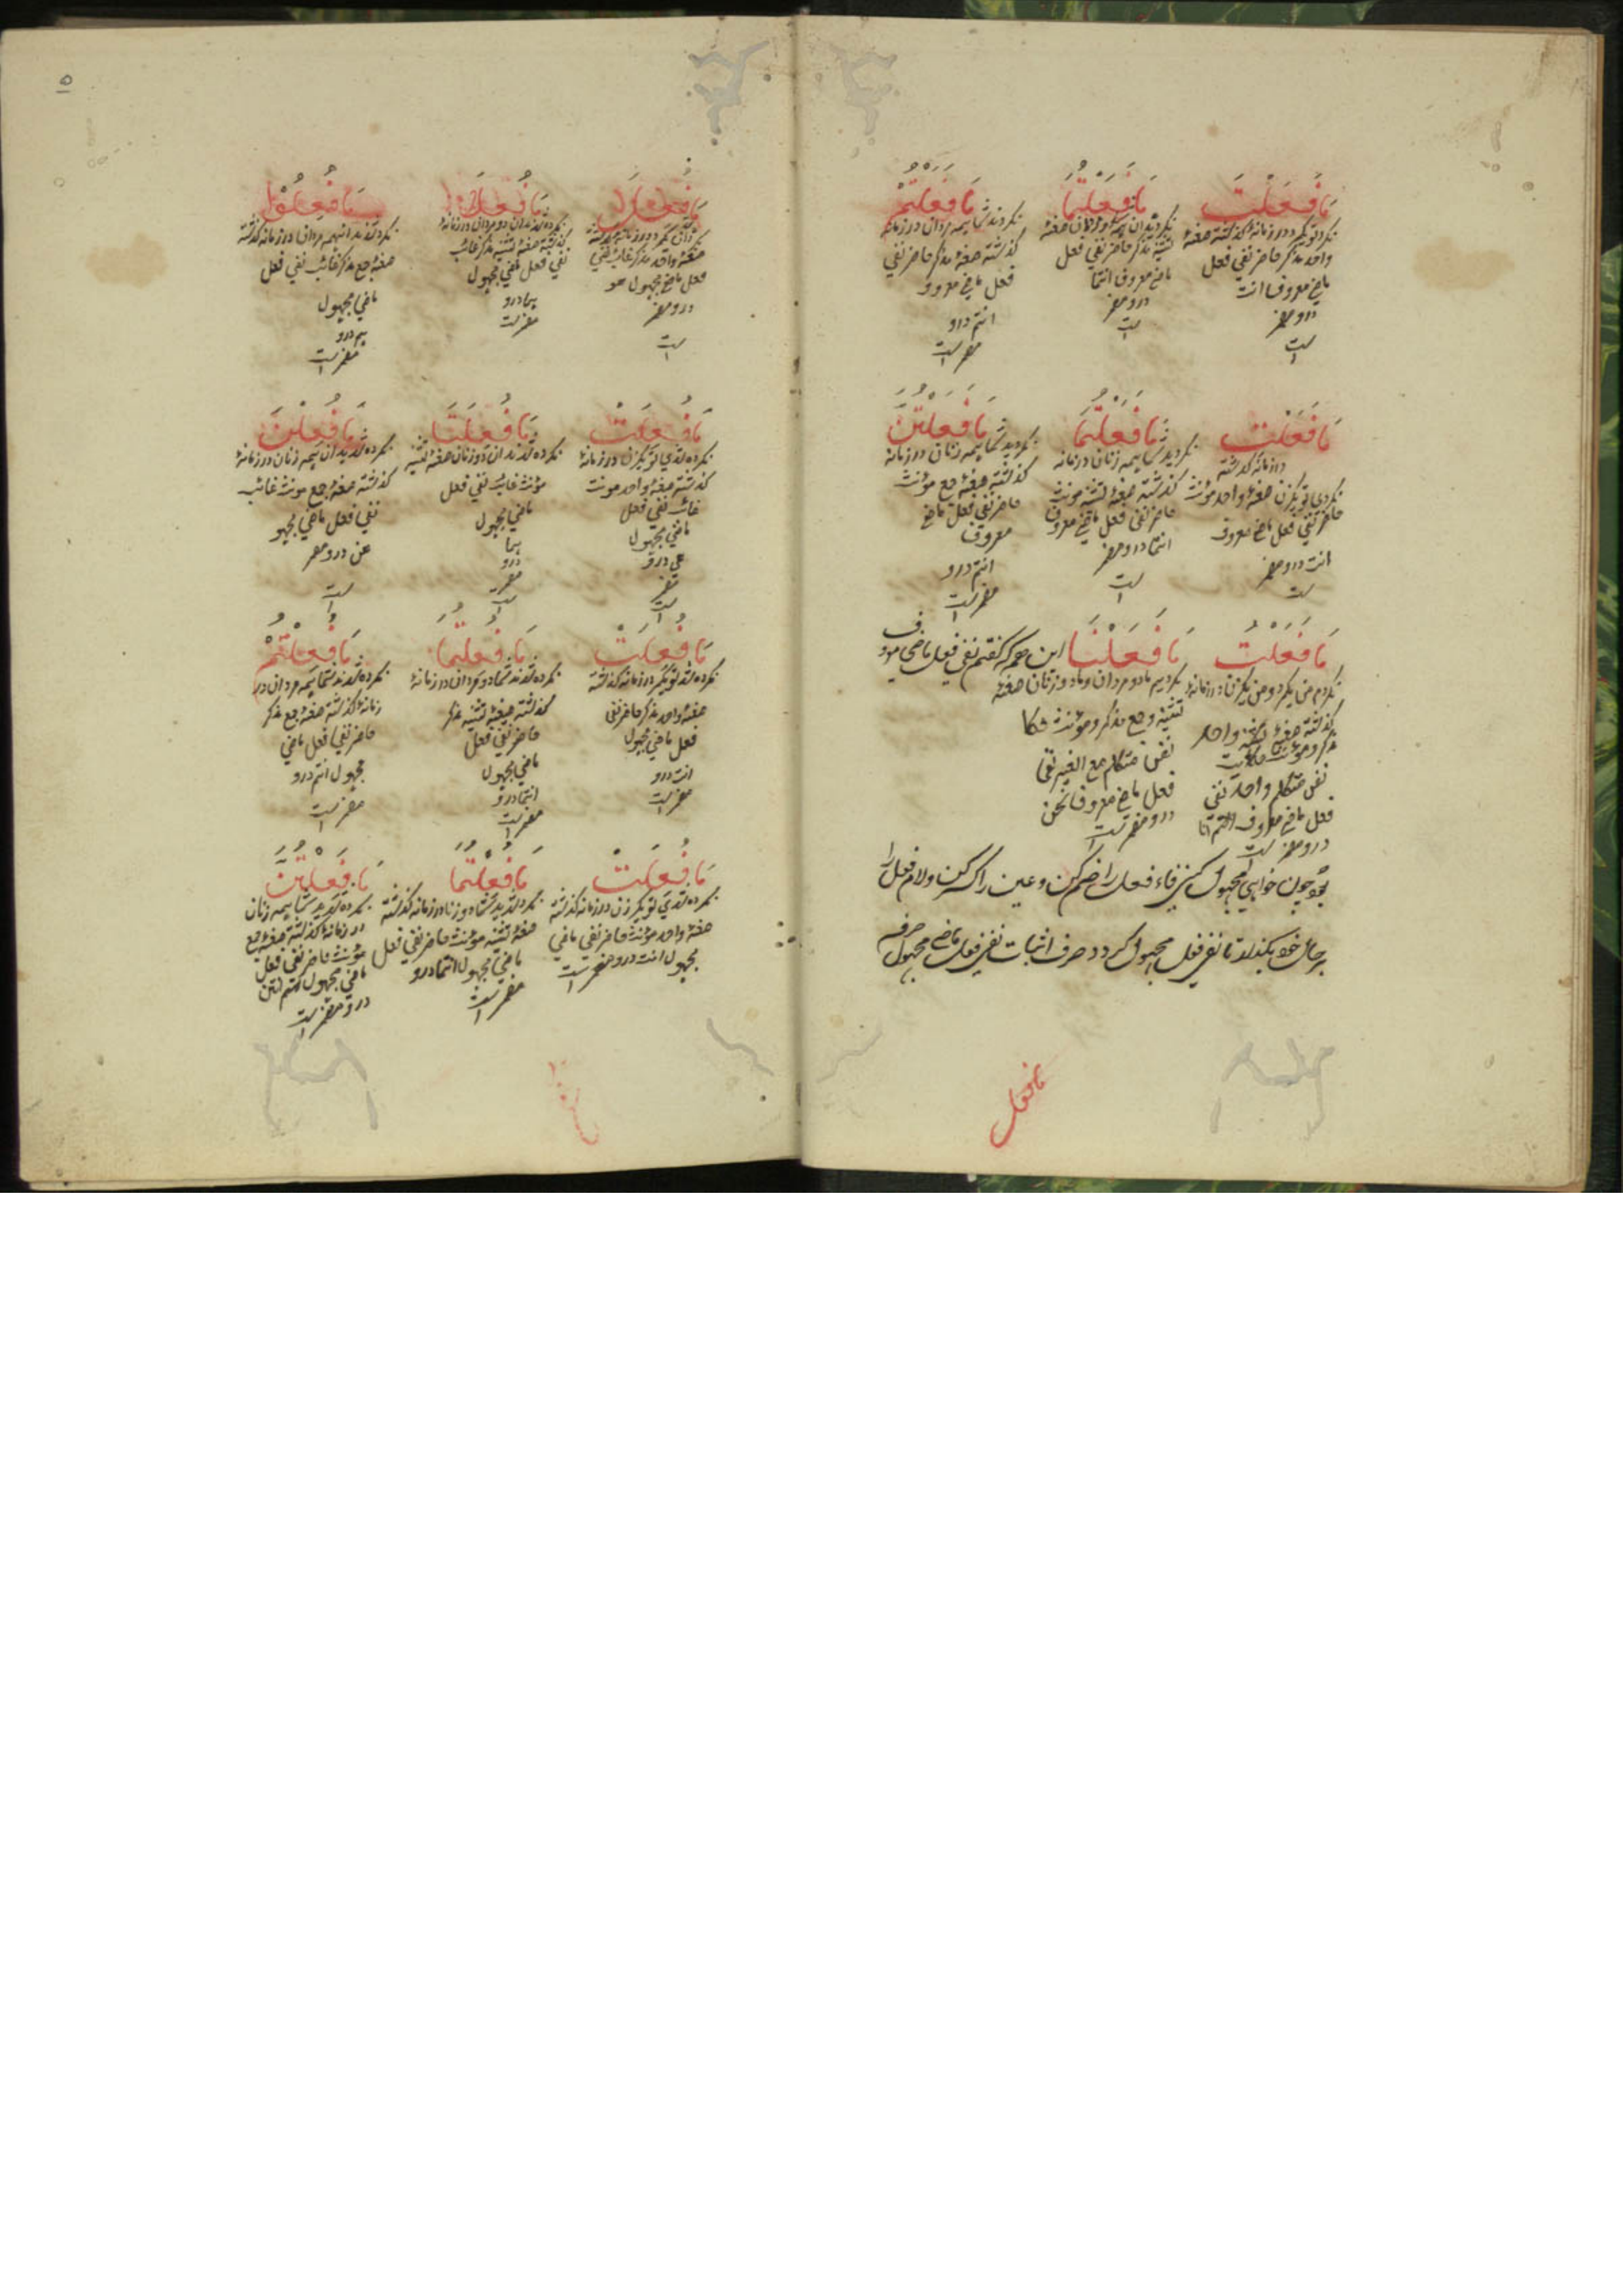 مَا فَعَلْتَ
نکردی تو یکمرد در زمانهٔ گذشته صیغهٔ
واحد مذکر حاضر نفی فعل
ماضی معروف انت
درو مضمر
است
مَا فَعَلْتُمَا
تثنیه مذکر حاضر نفی فعل
ماضی معروف انتما
درو مضمر
است
مَا فَعَلْتُمْ
نکردند شما همه مردان در زمانه
گذشته صیغهٔ مذکر حاضر نفی
فعل ماضی معروف
انتم درو
مضمر است
مَا فَعَلْتِ
در زمانه گذشته
نکردی تو یکزن صیغهٔ واحد مؤنث
حاضر نفی فعل ماضی معروف
انت درو مضمر
است
مَا فَعَلْتُمَا
نکردید شما همه زنان در زمانه
گذشته صیغهٔ تثنیه مؤنث
حاضر نفی فعل ماضی معروف
انتما درو مضمر
است
مَا فَعَلْتُنَّ
نکردید شما همه زنان در زمانه
گذشته صیغهٔ جمع مؤنث
حاضر نفی فعل ماضی
معروف
انتم درو
مضمر است
مَا فَعَلْتُ
نکردم من یکمرد و من یکزن در زمانهٔ
گذشته صیغهٔ واحد
مذکر و مؤنث حکایت
نفس متکلم واحد نفی
فعل ماضی معروف انا
درو مضمر است
مَا فَعَلْنَا این همه که گفتم نفی فعل ماضی معروف
نکردیم ما دو مردان و ما دو زنان صیغهٔ
تثنیه و جمع مذکر و مؤنث حکا
نفس متکلم مع الغیر نفی
فعل ماضی معروف نحن
درو مضمر است
بود چون خواهی مجهول کنی فاء فعل را ضم کن و عین را کسر کن و لام فعل را
بر حال خود بگذار تا نفی فعل مجهول گردد صرف اثبات نفی فعل ماضی مجهول
ما فعل
۵
مَا فُعِلَ
صیغهٔ واحد مذکر غائب نفی
فعل ماضی مجهول هو
درو مضمر
است
مَا فُعِلَا
نکرده شدند آن دو مردان در زمانهٔ
گذشته صیغهٔ تثنیه مذکر غائب
نفی فعل ماضی مجهول
هما درو
مضمر است
مَا فُعِلُوْا
نکرده شدند آن همه مردان در زمانه گذشته
صیغهٔ جمع مذکر غائب نفی فعل
ماضی مجهول
هم درو
مضمر است
مَا فُعِلَتْ
نکرده شدی تو یکزن در زمانهٔ
گذشته صیغهٔ واحد مونث
غائب نفی فعل
ماضی مجهول
هی درو
مضمر
است
مَا فُعِلَتَا
نکرده شدند آن دو زنان صیغهٔ تثنیه
مؤنث غائب نفی فعل
ماضی مجهول
هما
درو
مضمر
است
مَا فُعِلْنَ
نکرده شدید آن همه زنان در زمانهٔ
گذشته صیغهٔ جمع مونث غائب
نفی فعل ماضی مجهو
هن درو مضمر
است
مَا فُعِلْتَ
نکرده شد تو یکمرد در زمانه گذشته
صیغهٔ واحد مذکر حاضر نفی
فعل ماضی مجهول
انت درو
مضمر است
مَا فُعِلْتُمَا
نکرده شدند شما دو مردان در زمانهٔ
گذشته صیغهٔ تثنیه مذکر
حاضر نفی فعل
ماضی مجهول
انتما درو
مضمر است
مَا فُعِلْتُمْ
نکرده شدند شما همه مردان در
زمانهٔ گذشته صیغهٔ جمع مذکر
حاضر نفی فعل ماضی
مجهول انتم درو
مضمر است
مَا فُعِلْتِ
نکرده شدی تو یکزن در زمانه گذشته
صیغهٔ واحد مؤنث حاضر نفی ماضی
مجهول انت درو مضمر است
مَا فُعِلْتُمَا
نکرده شدید شما دو زنا در زمانه گذشته
صیغهٔ تثنیه مؤنث حاضر نفی فعل
ماضی مجهول انتما درو
مضمر است
مَا فُعِلْتُنَّ
نکرده شدید شما همه زنان
در زمانهٔ گذشته صیغهٔ جمع
مؤنث حاضر نفی فعل
ماضی مجهول انتن
درو مضمر است